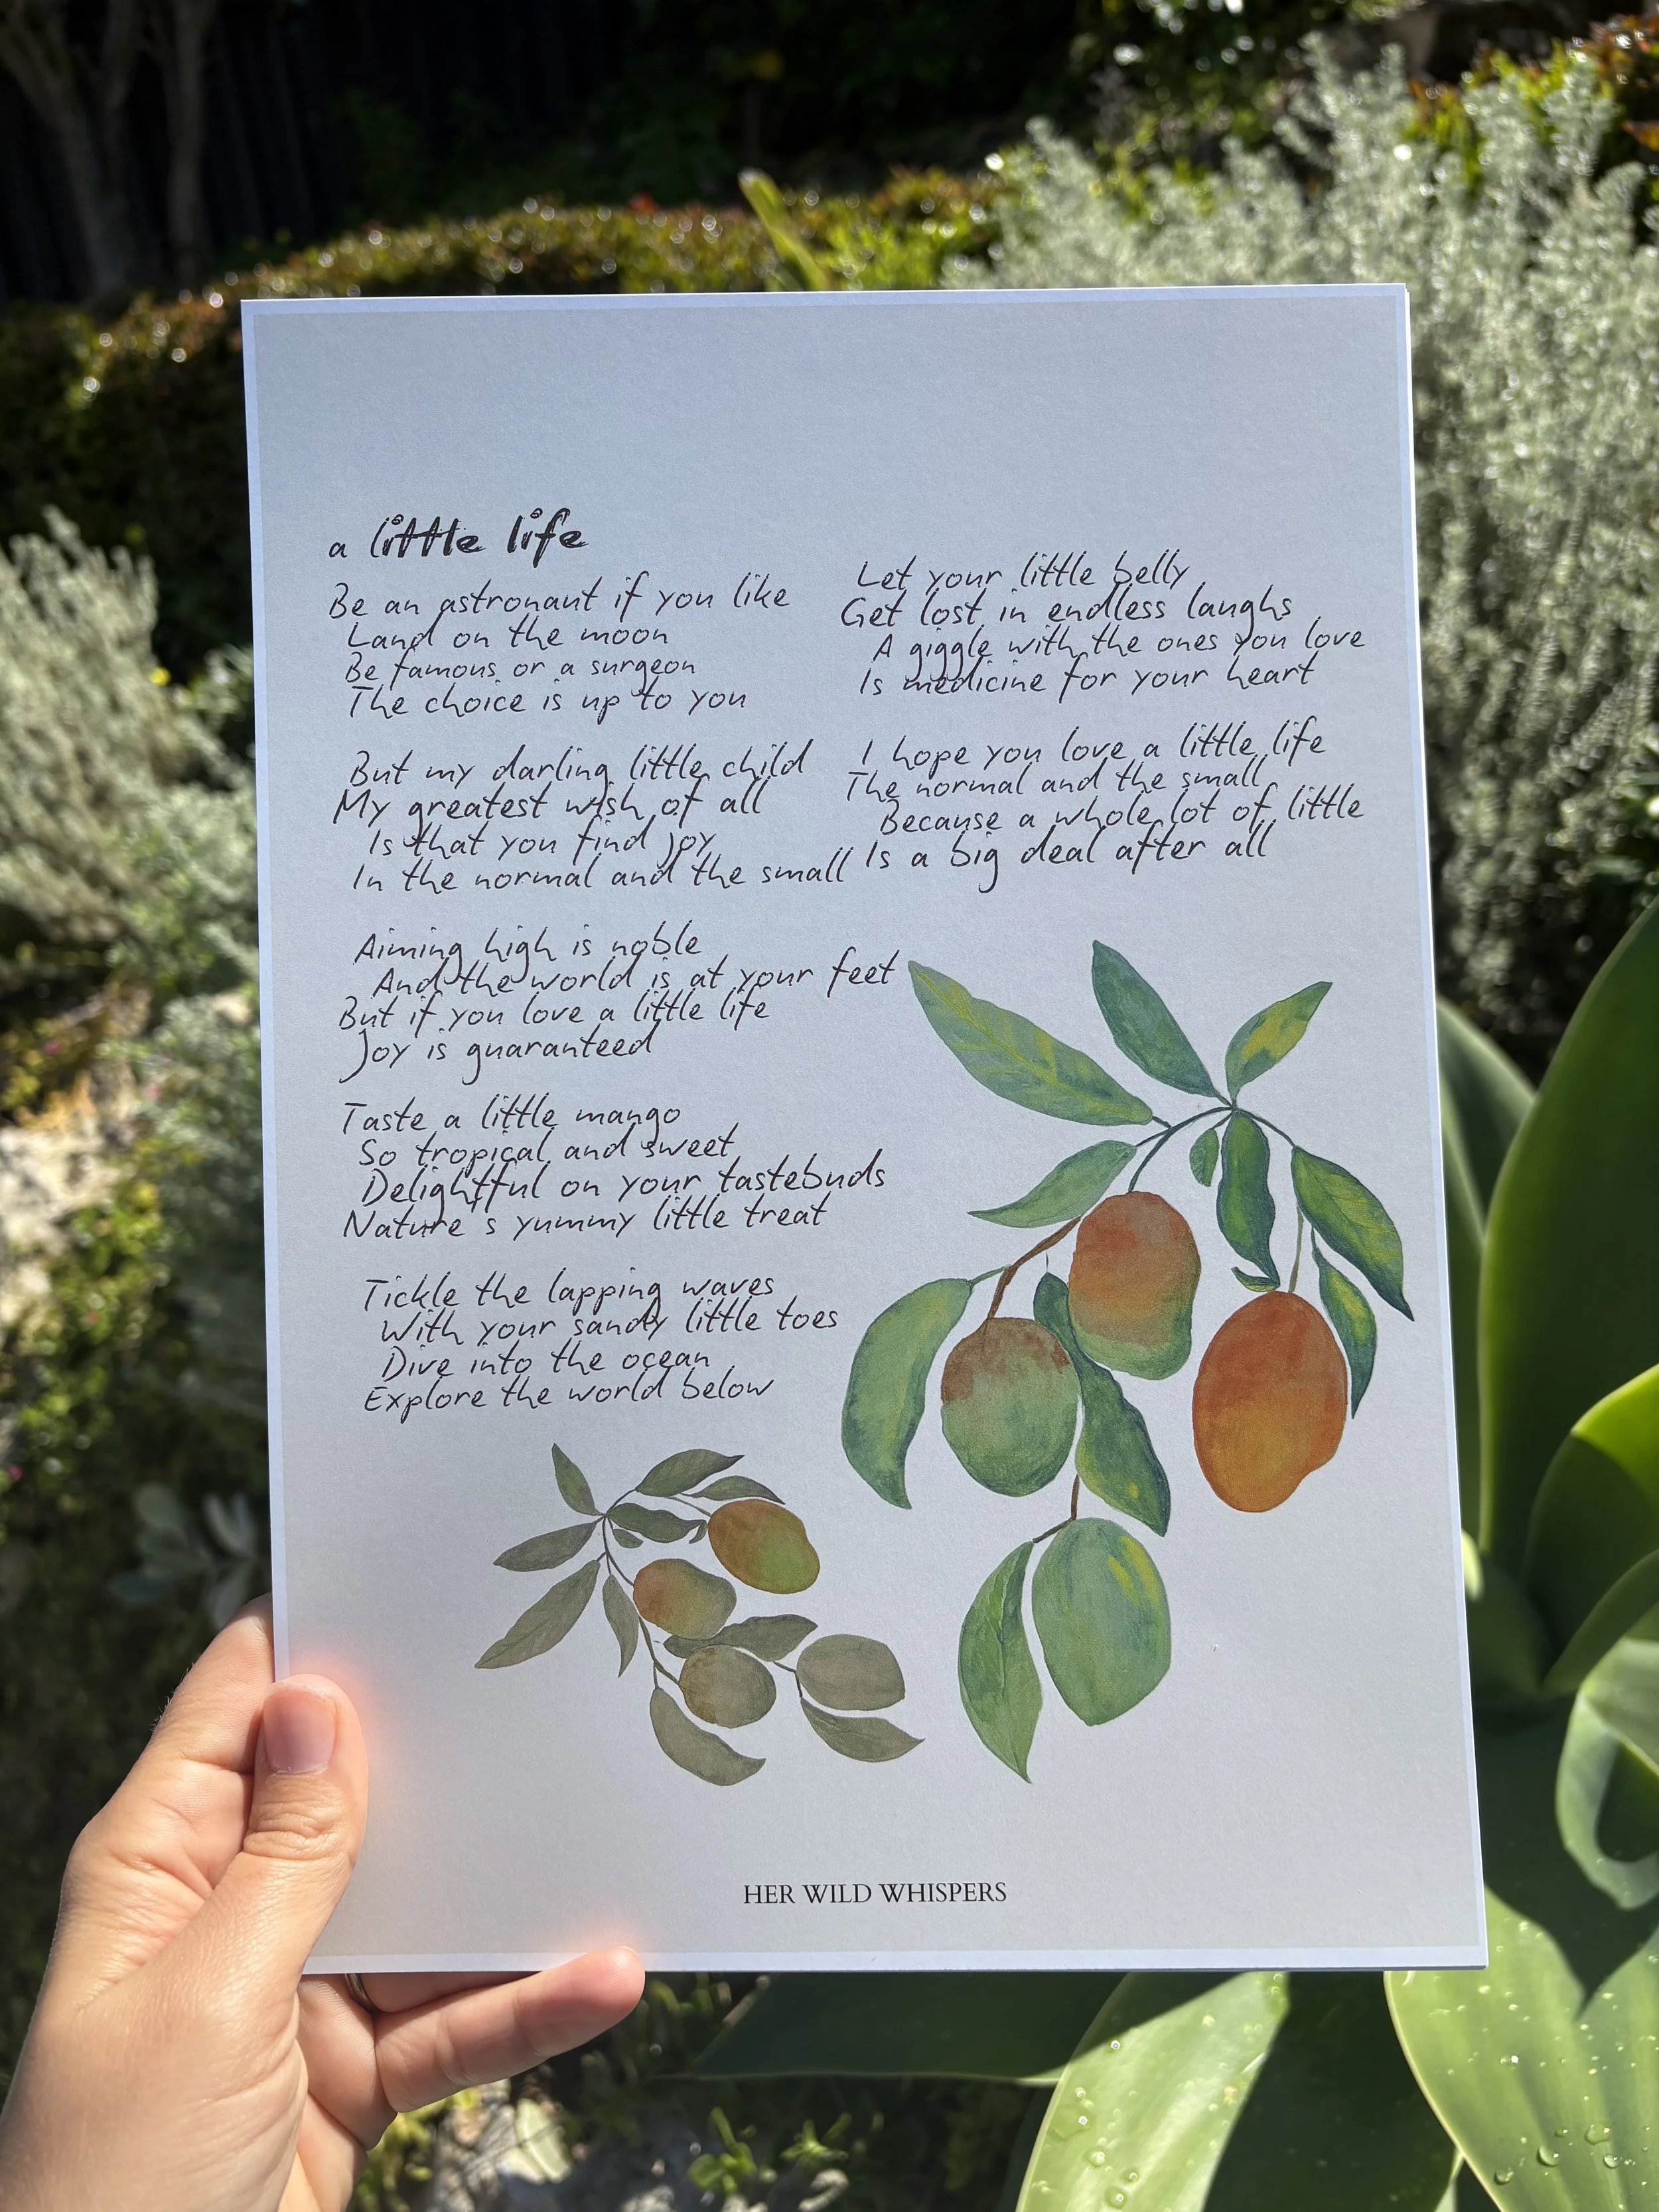 a little life
Be an astronaut if you like
Land on the moon
Be famous or a surgeon
The choice is up to you
But my darling little child
My greatest wish of all
Is that you find joy
In the normal and the small
Aiming high is noble
And the world is at your feet
But if you love a little life
Joy is guaranteed
Taste a little mango
So tropical and sweet
Delightful on your tastebuds
Nature s yummy little treat
Tickle the lapping waves
With your sandy little toes
Dive into the ocean
Explore the world below
Let your little belly
Get lost in endless laughs
A giggle with the ones you love
Is medicine for your heart
I hope you love a little life
The normal and the small
Because a whole lot of little
Is a big deal after all
HER WILD WHISPERS